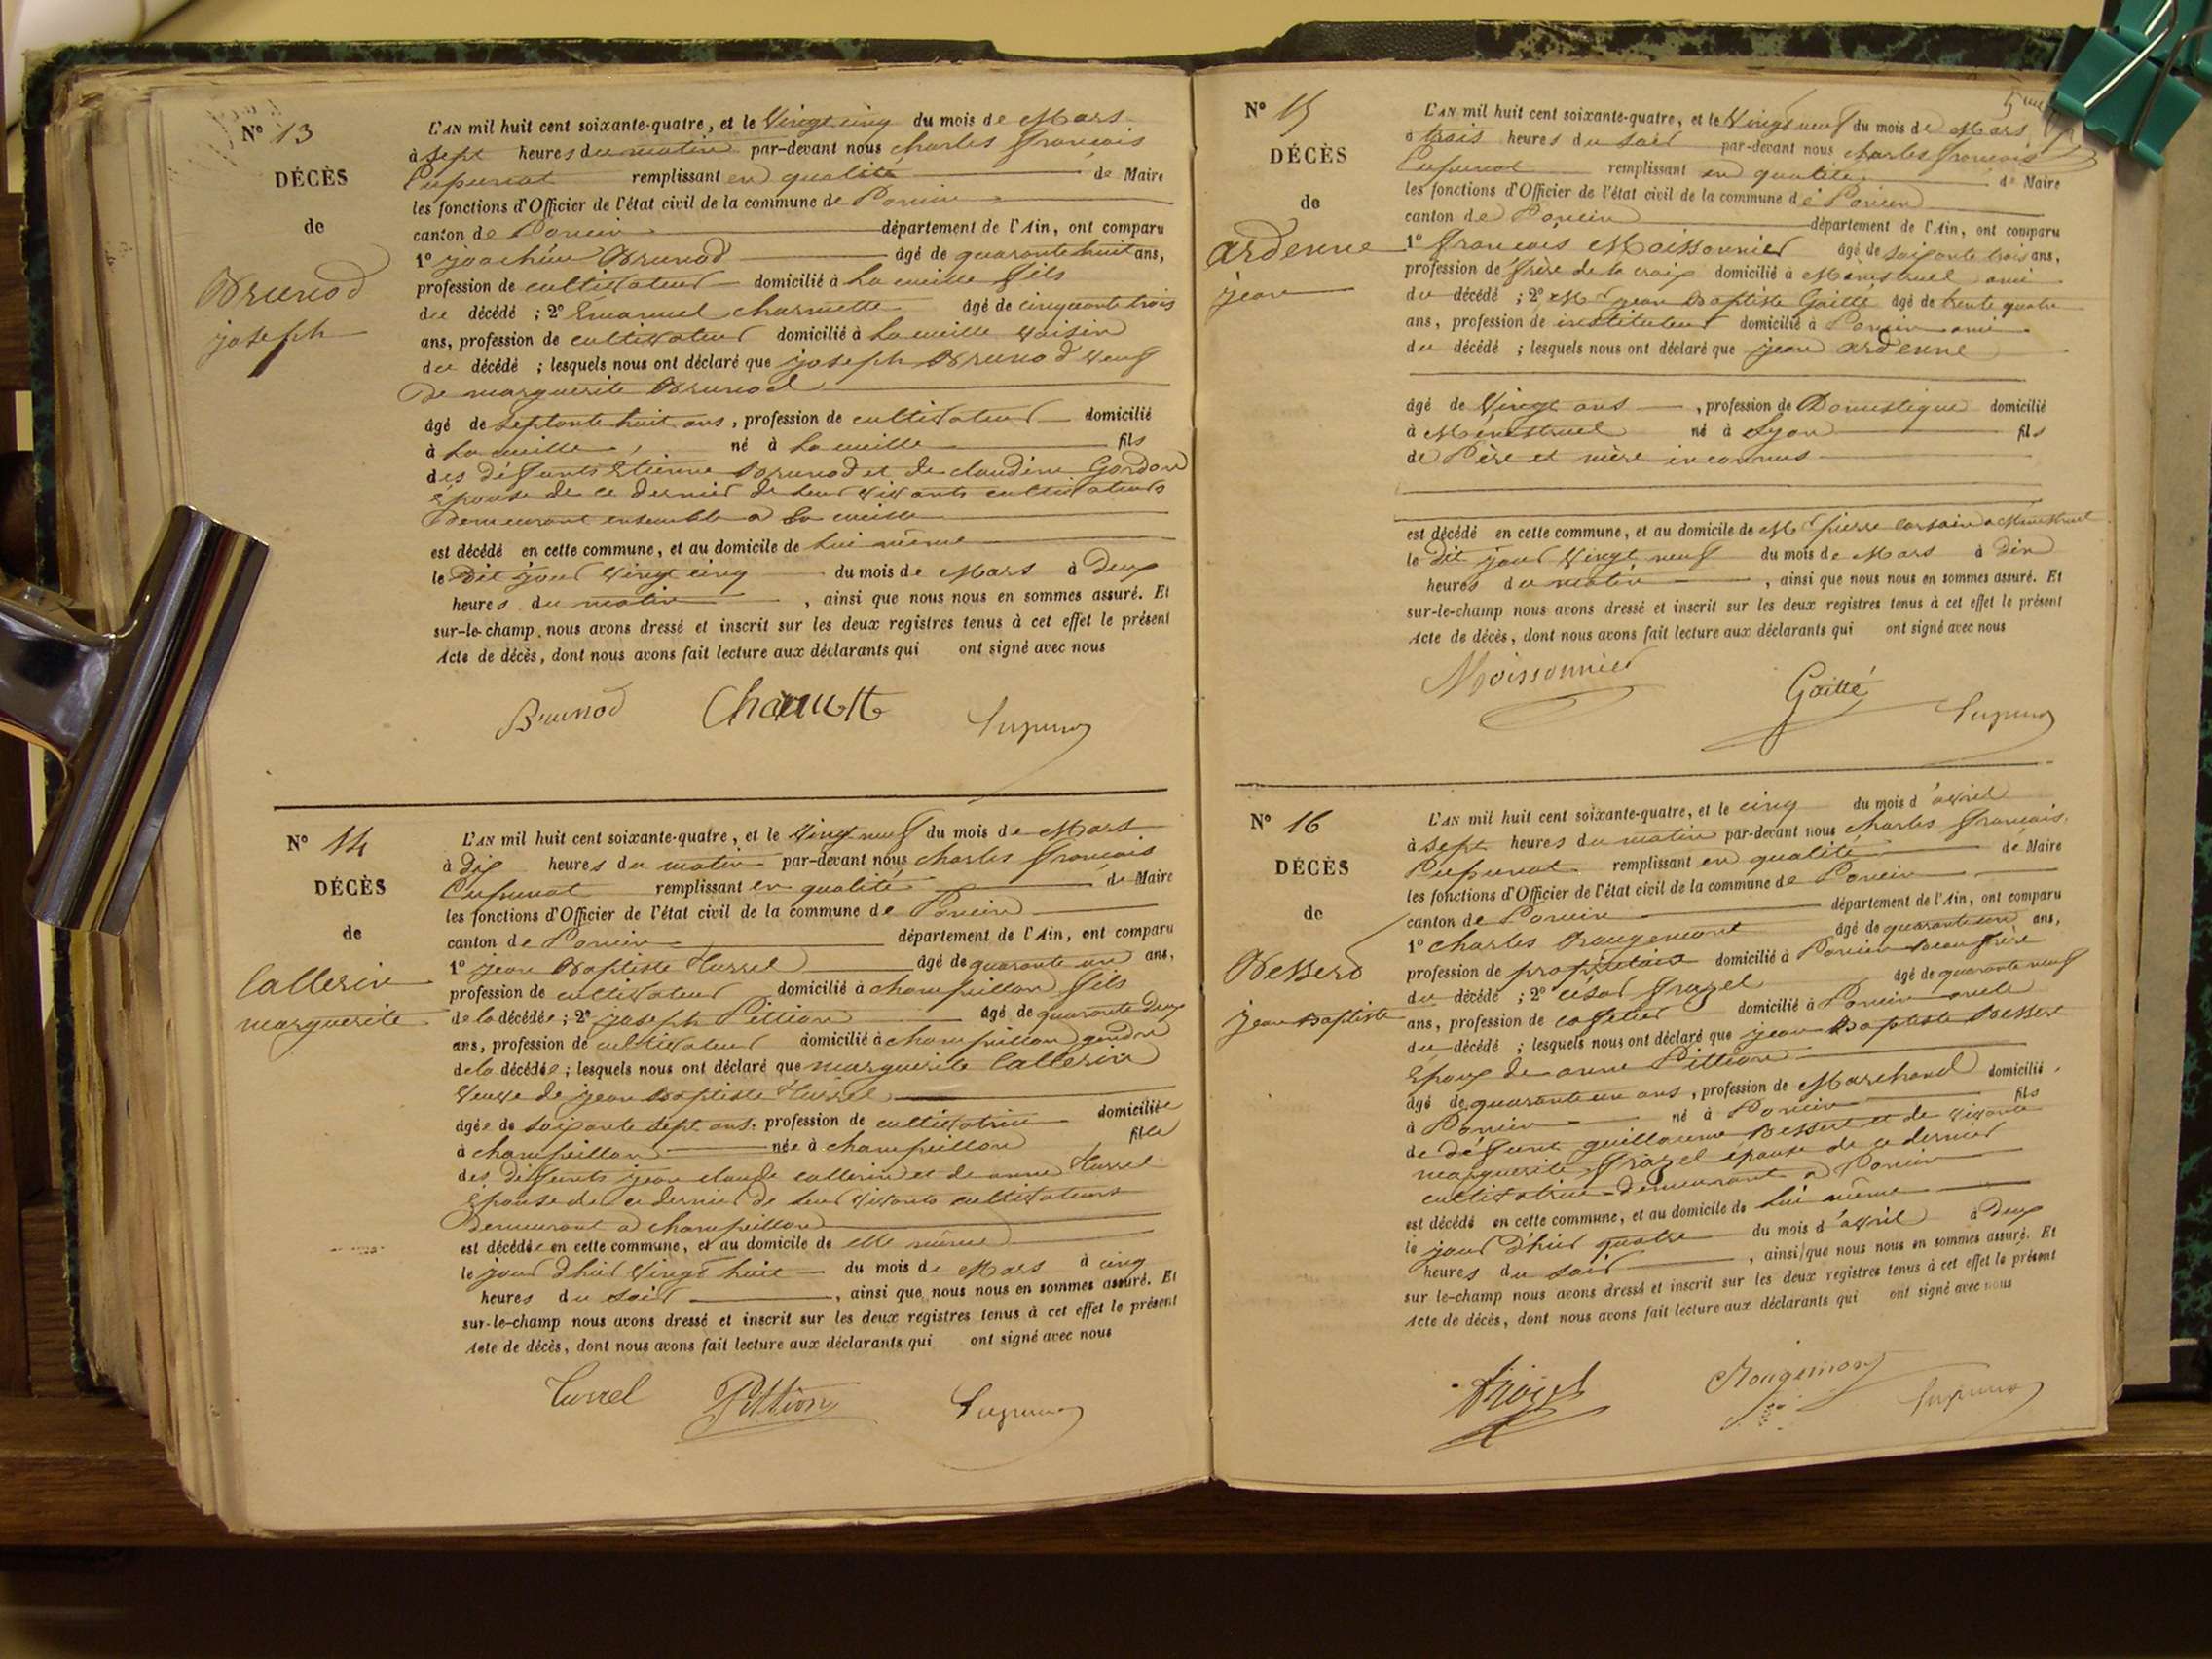 N° 13
DÉCÈS
de
Brunod
joseph
L'AN mil huit cent soixante-quatre, et le Vingt cinq du mois de Mars
à sept heures du matin par-devant nous charles françois
remplissant en qualité de Maire
les fonctions d'Officier de l'état civil de la commune de Poncin
canton de Poncin département de l'Ain, ont comparu
1° joachim Brunod âgé de quarante huit ans,
profession de cultivateur domicilié à La cueille fils
du décédé ; 2° Emanuel charmette âgé de cinquante trois
ans, profession de cultivateur domicilié à La cueille voisin
du décédé ; lesquels nous ont déclaré que joseph Brunod veuf
de marguerite Brunod
âgé de septante huit ans, profession de cultivateur domicilié
à La cueille, né à La cueille fils
des défunts Etienne Brunod et de claudine Gordon
Epouse de ce dernier de leur vivants cultivateurs
demeurant ensemble a La cueille
est décédé en cette commune, et au domicile de lui même
le dit jour vingt cinq du mois de Mars à deux
heures du matin, ainsi que nous nous en sommes assuré. Et
sur-le-champ nous avons dressé et inscrit sur les deux registres tenus à cet effet le présent
Acte de décès, dont nous avons fait lecture aux déclarants qui ont signé avec nous
Brunod
N° 14
DÉCÈS
de
Callerin
marguerite
L'AN mil huit cent soixante-quatre, et le Vingt neuf du mois de Mars
à dix heures du matin par-devant nous charles françois
remplissant en qualité de Maire
les fonctions d'Officier de l'état civil de la commune de Poncin
canton de Poncin département de l'Ain, ont comparu
1° jean Baptiste Turrel âgé de quarante un ans,
profession de cultivateur domicilié à champeillon fils
de la décédée ; 2° joseph Pittion âgé de quarante deux
ans, profession de cultivateur domicilié à champeillon gendre
de la décédée ; lesquels nous ont déclaré que marguerite Callerin
Veuve de jean Baptiste Turrel
âgée de soixante sept ans, profession de cultivatrice domiciliée
à champeillon née à champeillon fille
des défunts jean claude callerin et de anne Turrel
Epouse de ce dernier de leur vivants cultivateurs
demeurant a champeillon
est décédée en cette commune, et au domicile de elle même
le jour d'hier vingt huit du mois de Mars à cinq
heures du soir, ainsi que nous nous en sommes assuré. Et
sur-le-champ nous avons dressé et inscrit sur les deux registres tenus à cet effet le présent
Acte de décès, dont nous avons fait lecture aux déclarants qui ont signé avec nous
Turrel Pittion
N° 15
DÉCÈS
de
ardenne
jean
L'AN mil huit cent soixante-quatre, et le Vingt neuf du mois de Mars
à trois heures du soir par-devant nous charles françois
remplissant en qualité de Maire
les fonctions d'Officier de l'état civil de la commune de Poncin
canton de Poncin département de l'Ain, ont comparu
1° françois Moissonnier âgé de soixante trois ans,
profession de frère de la croix domicilié à Ménestruel ami
du décédé ; 2° Mr jean Baptiste Gaitté âgé de trente quatre
ans, profession de instituteur domicilié à Poncin ami
du décédé ; lesquels nous ont déclaré que jean ardenne
âgé de Vingt ans, profession de Domestique domicilié
à Ménestruel né à Lyon fils
de Père et mère inconnus
est décédé en cette commune, et au domicile de Mr pierre a Ménestruel
le dit jour Vingt neuf du mois de Mars à dix
heures du matin, ainsi que nous nous en sommes assuré. Et
sur-le-champ nous avons dressé et inscrit sur les deux registres tenus à cet effet le présent
Acte de décès, dont nous avons fait lecture aux déclarants qui ont signé avec nous
Moissonnier Gaitté
N° 16
DÉCÈS
de
Bessero
jean Baptiste
L'AN mil huit cent soixante-quatre, et le cinq du mois d'avril
à sept heures du matin par-devant nous charles françois
remplissant en qualité de Maire
les fonctions d'Officier de l'état civil de la commune de Poncin
canton de Poncin département de l'Ain, ont comparu
1° charles Rougemont âgé de quarante un ans,
profession de propriétaire domicilié à Poncin Beau frère
du décédé ; 2° césar frazel âgé de quarante neuf
ans, profession de cafetier domicilié à Poncin oncle
du décédé ; lesquels nous ont déclaré que jean Baptiste Bessert
Epoux de anne Pittion
âgé de quarante un ans, profession de Marchand domicilié
à Poncin né à Poncin fils
de défunt guillaume Bessert et de vivante
marguerite frazel épouse de ce dernier
cultivatrice demeurant a Poncin
est décédé en cette commune, et au domicile de lui même
le jour d'hier quatre du mois d'avril à deux
heures du soir, ainsi que nous nous en sommes assuré. Et
sur le-champ nous avons dressé et inscrit sur les deux registres tenus à cet effet le présent
Acte de décès, dont nous avons fait lecture aux déclarants qui ont signé avec nous
Rougemont